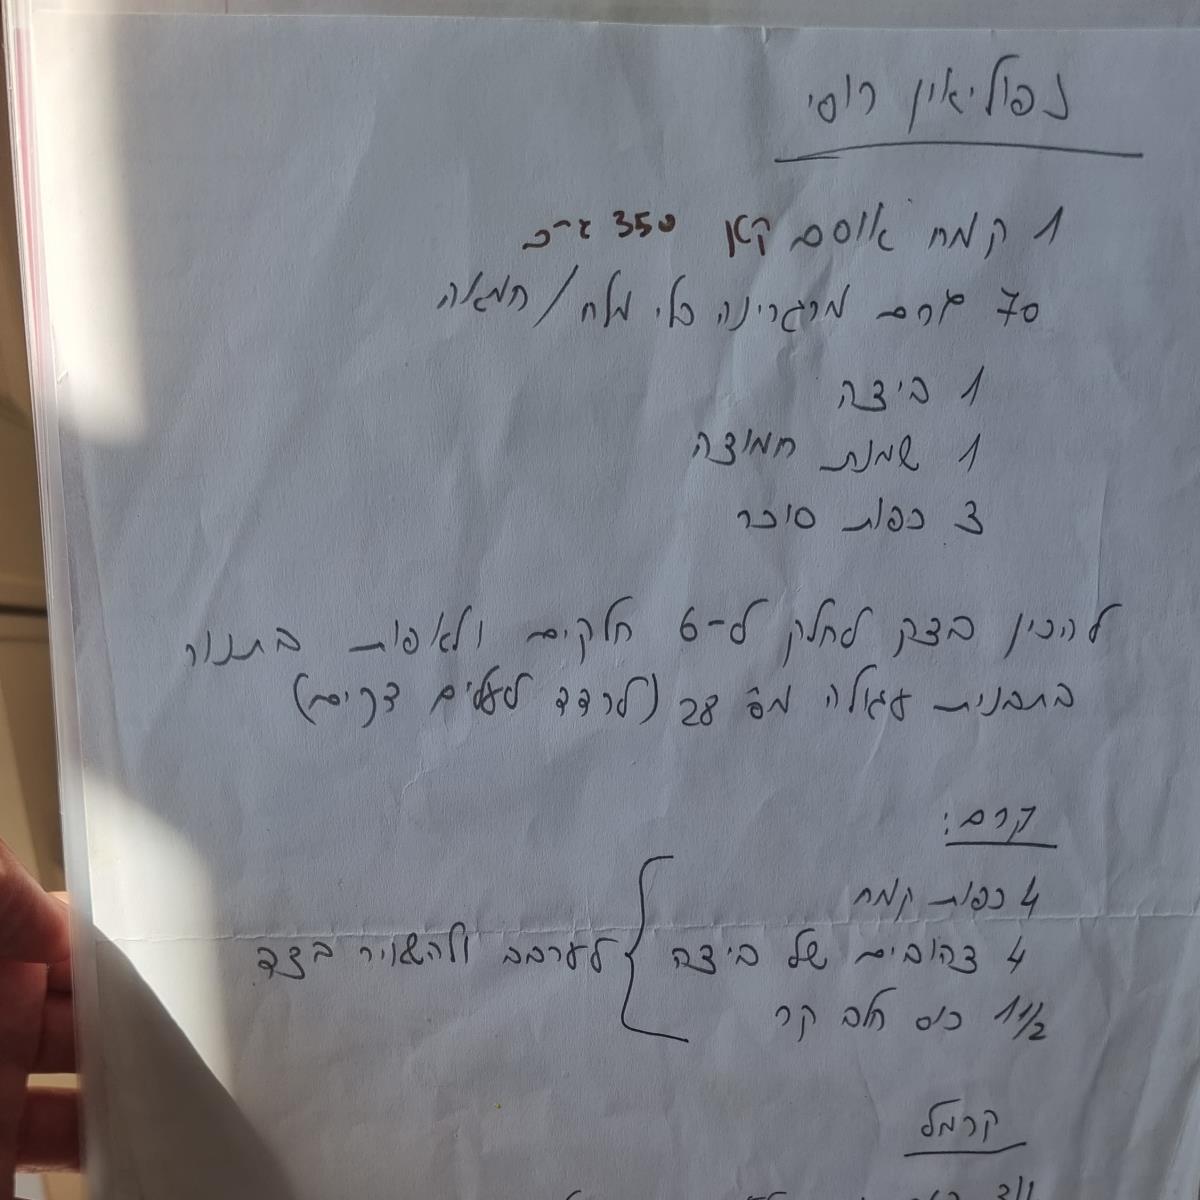 נפוליאון רוסי
1 קמח אוסם קטן 350 גרם
70 גרם מרגרינה בלי מלח / חמאה
1 ביצה
1 שמנת חמוצה
3 כפות סוכר
להכין בצק לחלק ל-6 חלקים ולאפות בתנור
בתבנית עגולה מס 28 (לרדד לעלים דקים)
קרם:
4 כפות קמח
4 צהובים של ביצה
1 1/2 כוס חלב קר
לערבב ולהשאיר בצד
קרמל